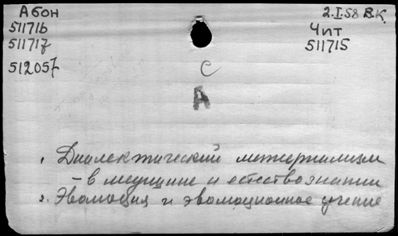 Абон
511716
511717
512057
2.I.58 В.К.
Чит
511715
С
А
1. Диалектический материализм
- в медицине и естествознании
2. Эволюция и эволюционное учение